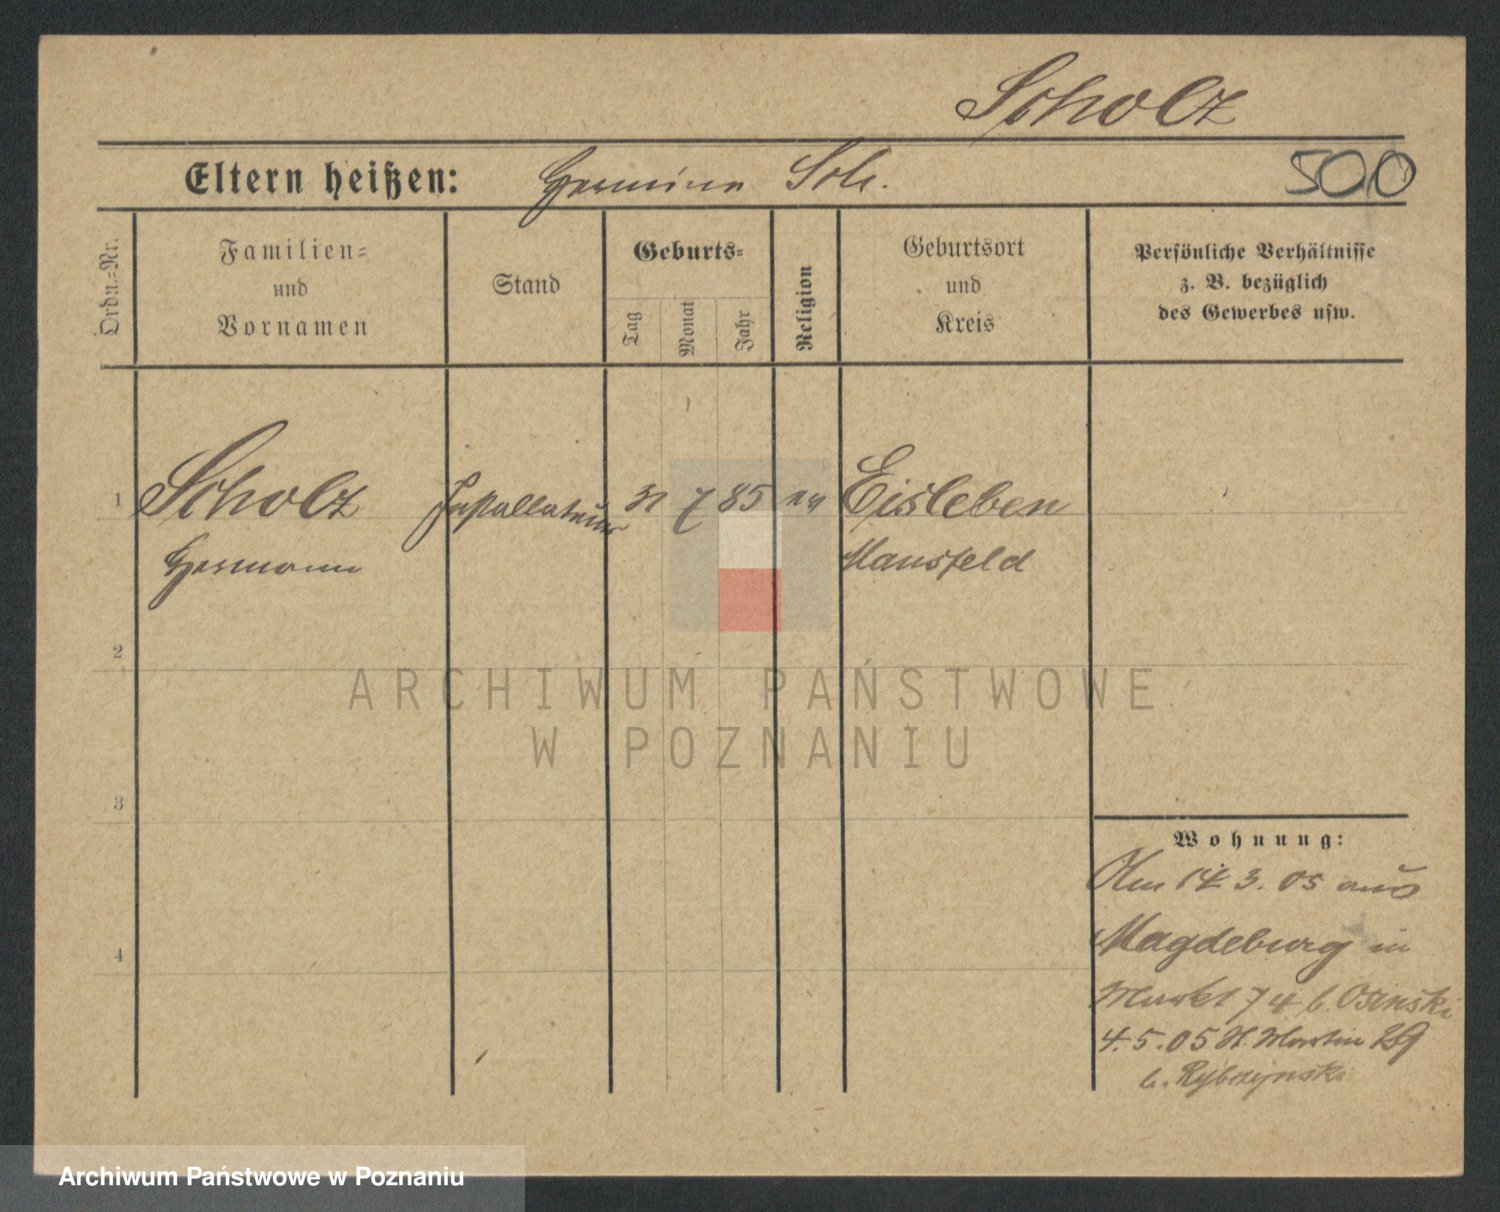 Scholz
Eltern heißen: Hermine Sch.
500
Ordn.=Nr.
Familien=
und
Vornamen
Stand
Geburts=
Tag
Monat
Jahr
Religion
Geburtsort
und
Kreis
Persönliche Verhältnisse
z. B. bezüglich
des Gewerbes usw.
1 Scholz Installateur 31 7 85 ev Eisleben
Hermann Mansfeld
2
ARCHIWUM PAŃSTWOWE
W POZNANIU
3
Wohnung:
Am 14 3. 05 aus
Magdeburg in
4
Markt 74 b. Osinski
4.5.05 St. Martin 29
b. Rybczynski
Archiwum Państwowe w Poznaniu